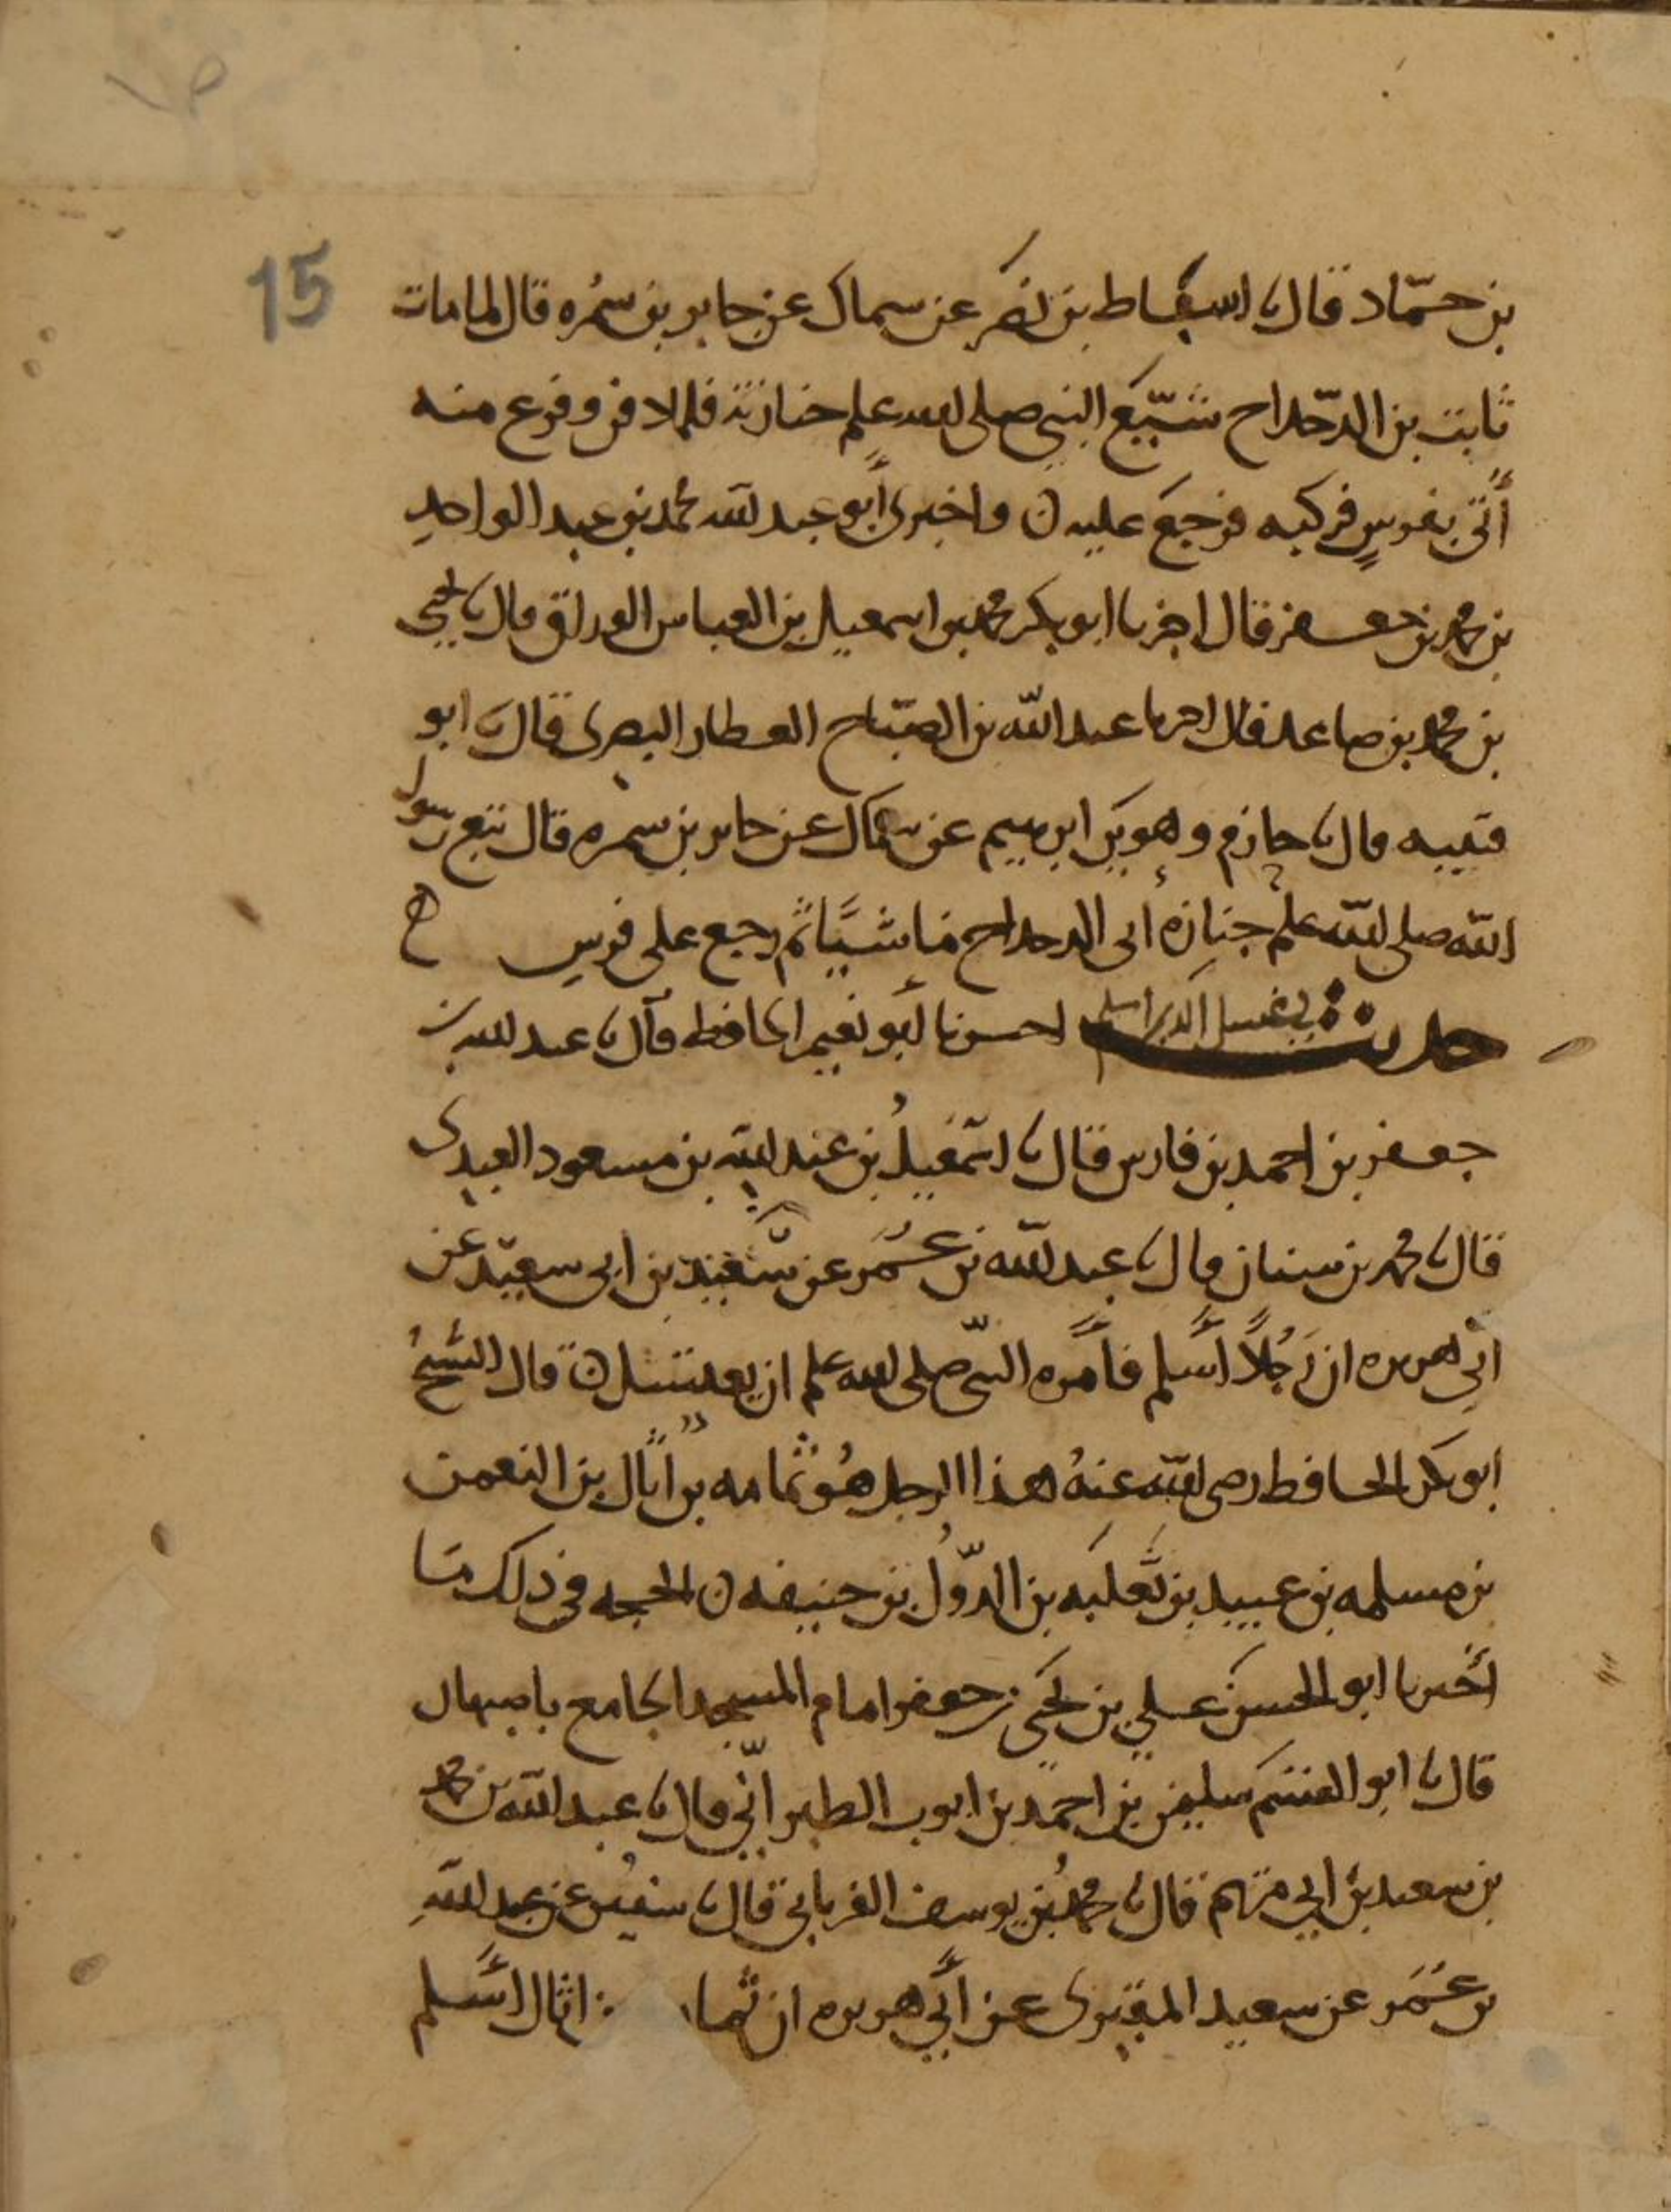 15
بن حمّاد قال ثنا اسباط بن نصر عن سماك عن جابر بن سمُره قال لما مات
ثابت بن الدّحداح شيّع النبي صلى الله علم جنازته فلما دفن وفرغ منه
أُتي بفرسٍ فركبه فرجع عليه ن واخبرنى أبو عبد الله محمد بن عبد الواحدِ
بن محمد بن جعفر قال اخبرنا ابو بكر محمد بن اسمعيل بن العباس الوراق قال ثنا يحيى
بن محمد بن صاعد قال اخبرنا عبد الله بن الصبّاح العطار البصرى قال ثنا ابو
قتيبه قال ثنا حازم وهو بن ابرهيم عن سماك عن جابر بن سمره قال تبع رسول
الله صلى الله علم جنازة أبى الدحداح ماشيًا ثم رجع على فرسٍ ه
حديث في غسل الذى اسلم اخبرنا أبو نعيم الحافظ قال ثنا عبد الله بن
جعفر بن احمد بن فارس قال ثنا اسمعيلُ بن عبد الله بن مسعود العبدى
قال ثنا محمد بن سنان قال ثنا عبد الله بن عُمَر عن سَعيد بن ابى سعيد عن
ابى هريره ان رَجُلاً أسلم فأمره النبيّ صلى الله علم ان يغتسل ن قال الشيخُ
ابو بكر الحافظ رضى الله عنهُ هذا الرجل هُو ثُمامه بن أثال بن النعمن
بن مسلمه بن عبيد بن ثَعلبَه بن الدّوُل بن حنيفه ن الحجه في ذلك ما
أخبرنا ابو الحسن علي بن يحيى بن جعفر امام المسجد الجامع باصبهان
قال ثنا ابو القسَم سليمن بن احمد بن ايوب الطبرانّي قال ثنا عبد الله بن محمد
بن سعيد بن ابي مريم قال ثنا محمدُ بن يوسف الفريابي قال ثنا سفين عن عبد اللهِ
بن عُمَر عن سعيد المقبرى عن أبي هريره ان ثُما بن اثال أسلم